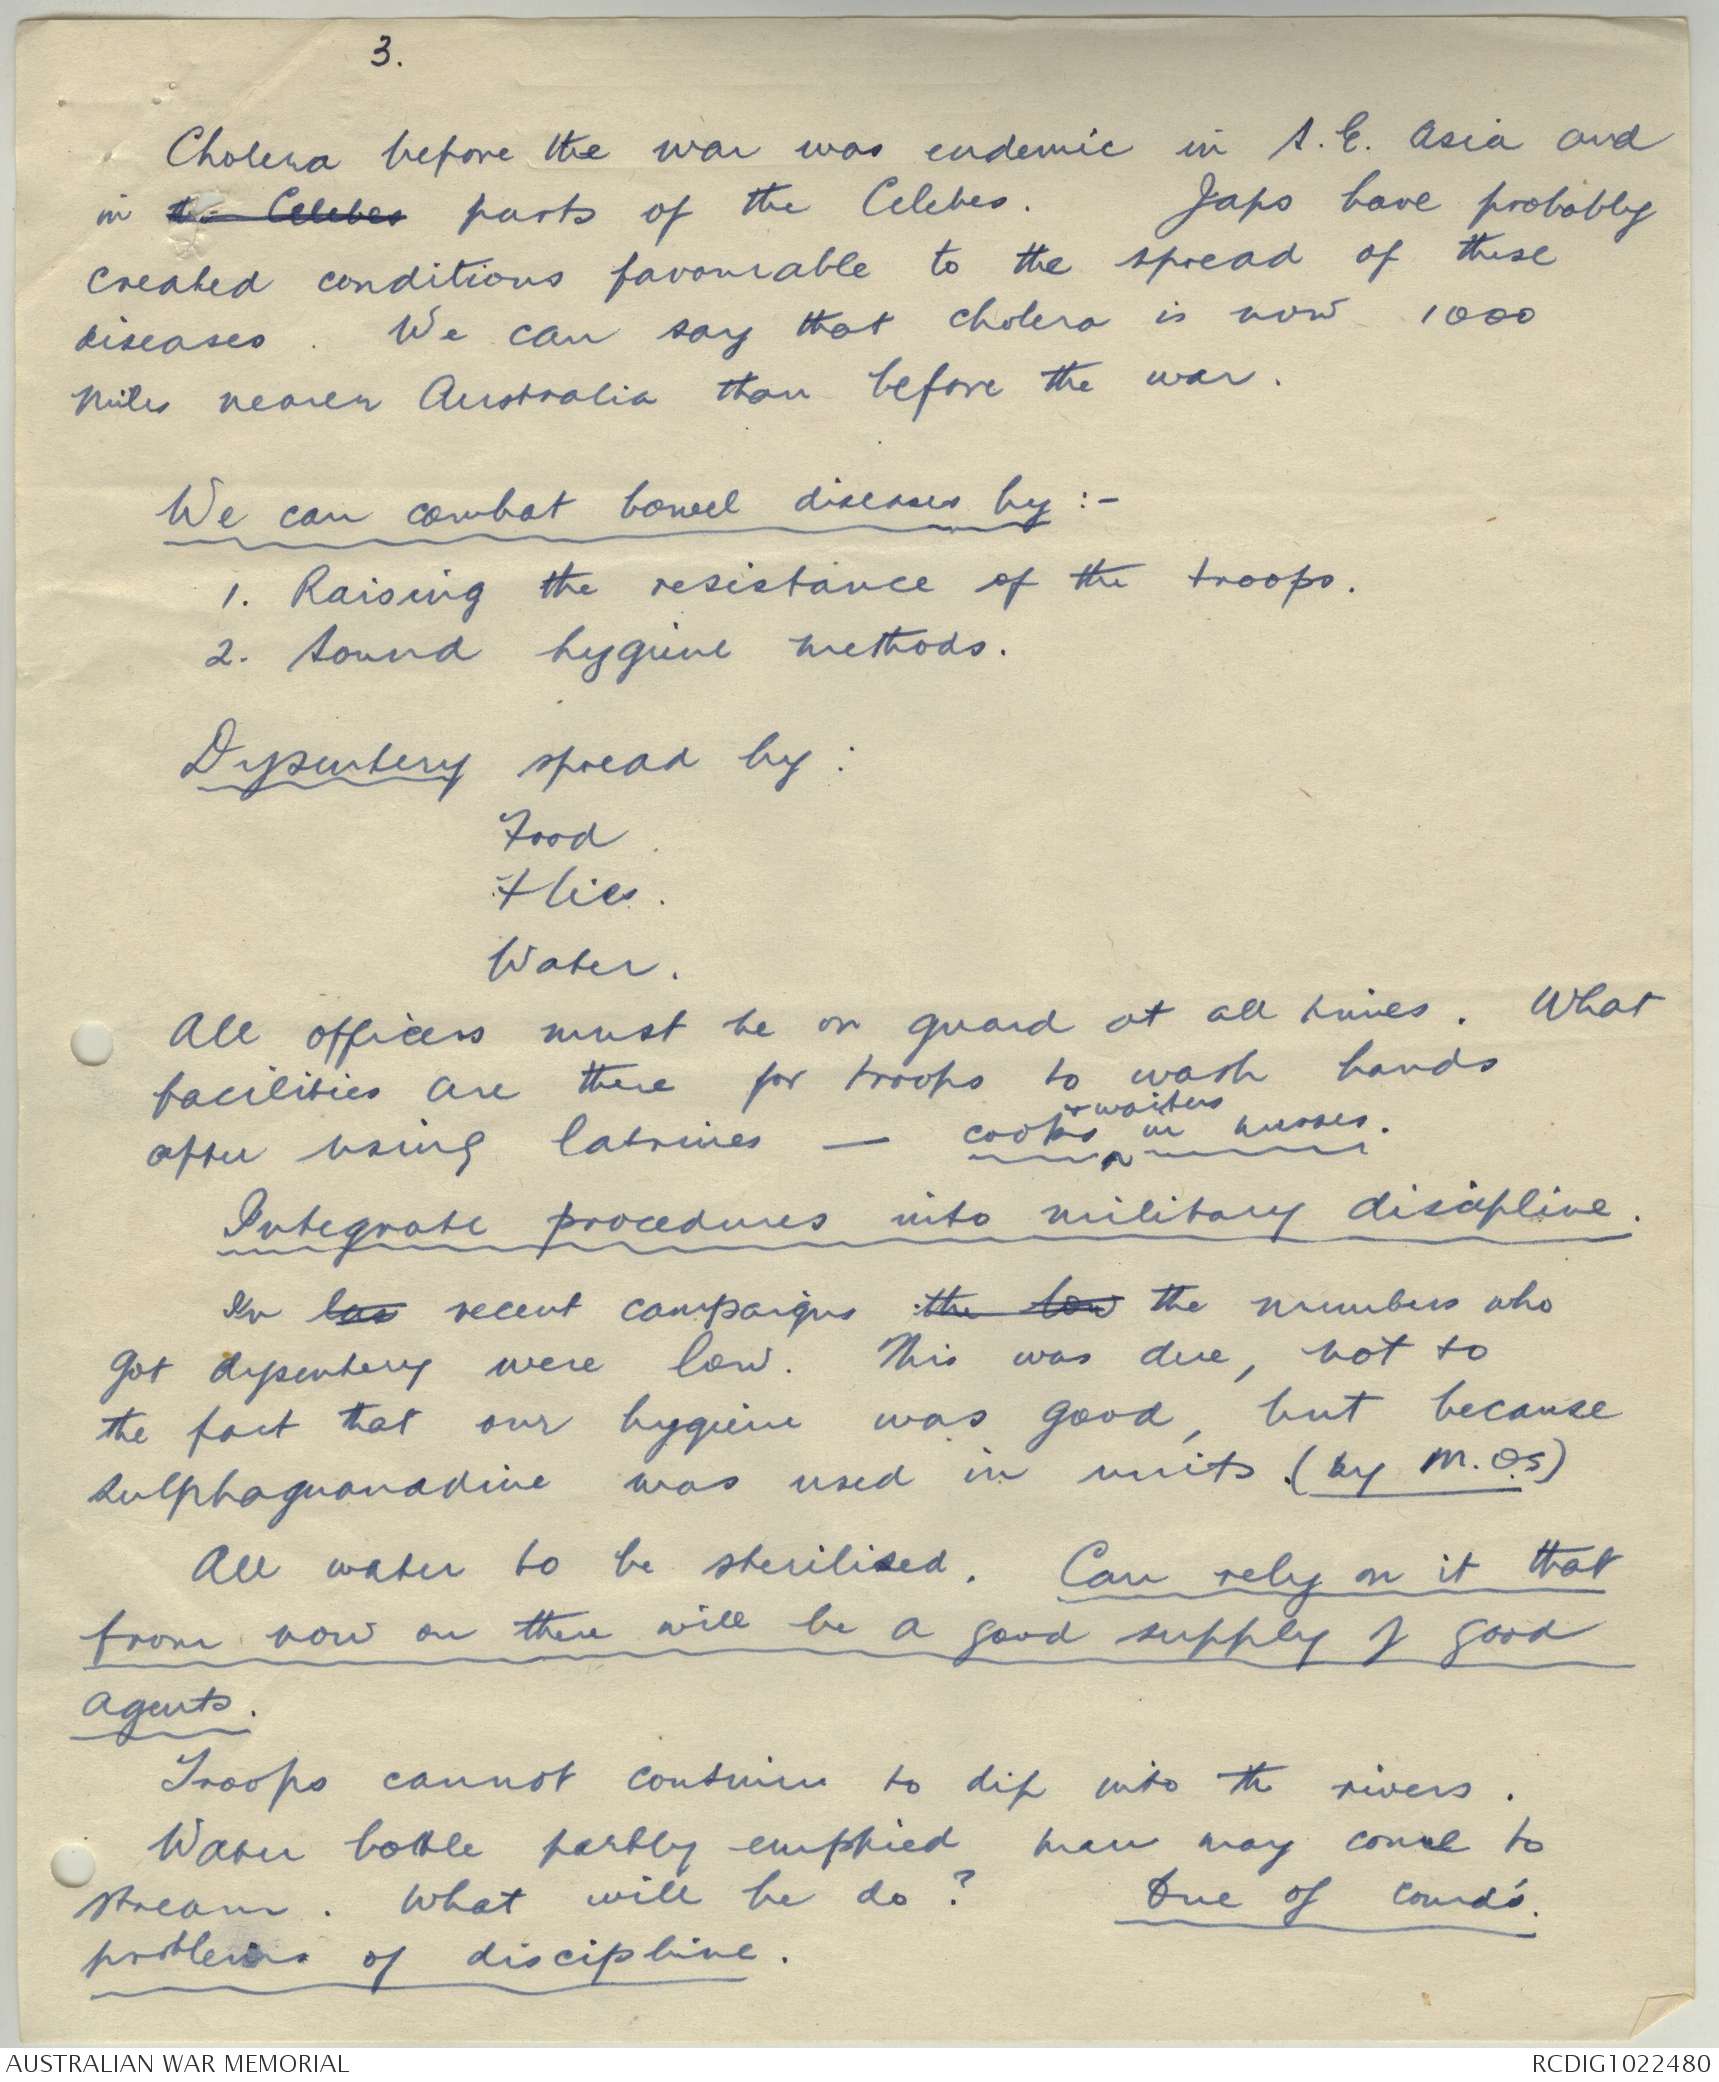 3.
Cholera before the war was endemic in S.E. Asia and
in the Celebes parts of the Celebes. Japs have probably
created conditions favourable to the spread of these
diseases. We can say that cholera is now 1000
miles nearer Australia than before the war.
We can combat bowel diseases by :-
1. Raising the resistance of the troops.
2. Sound hygiene methods.
Dysentery spread by :
Food
Flies.
Water.
All officers must be on guard at all times. What
facilities are there for troops to wash hands
after using latrines — cooks or waiters or nurses.
Integrate procedures into military discipline.
In las recent campaigns the low the numbers who
got dysentery were low. This was due, not to
the fact that our hygiene was good, but because
sulphaguanadine was used in units. (by M.Os)
All water to be sterilised. Can rely on it that
from now on there will be a good supply of good
agents.
Troops cannot continue to dip into the rivers.
Water bottle partly emptied man may come to
stream. What will he do? One of comd's.
problems of discipline.
AUSTRALIAN WAR MEMORIAL
RCDIG1022480